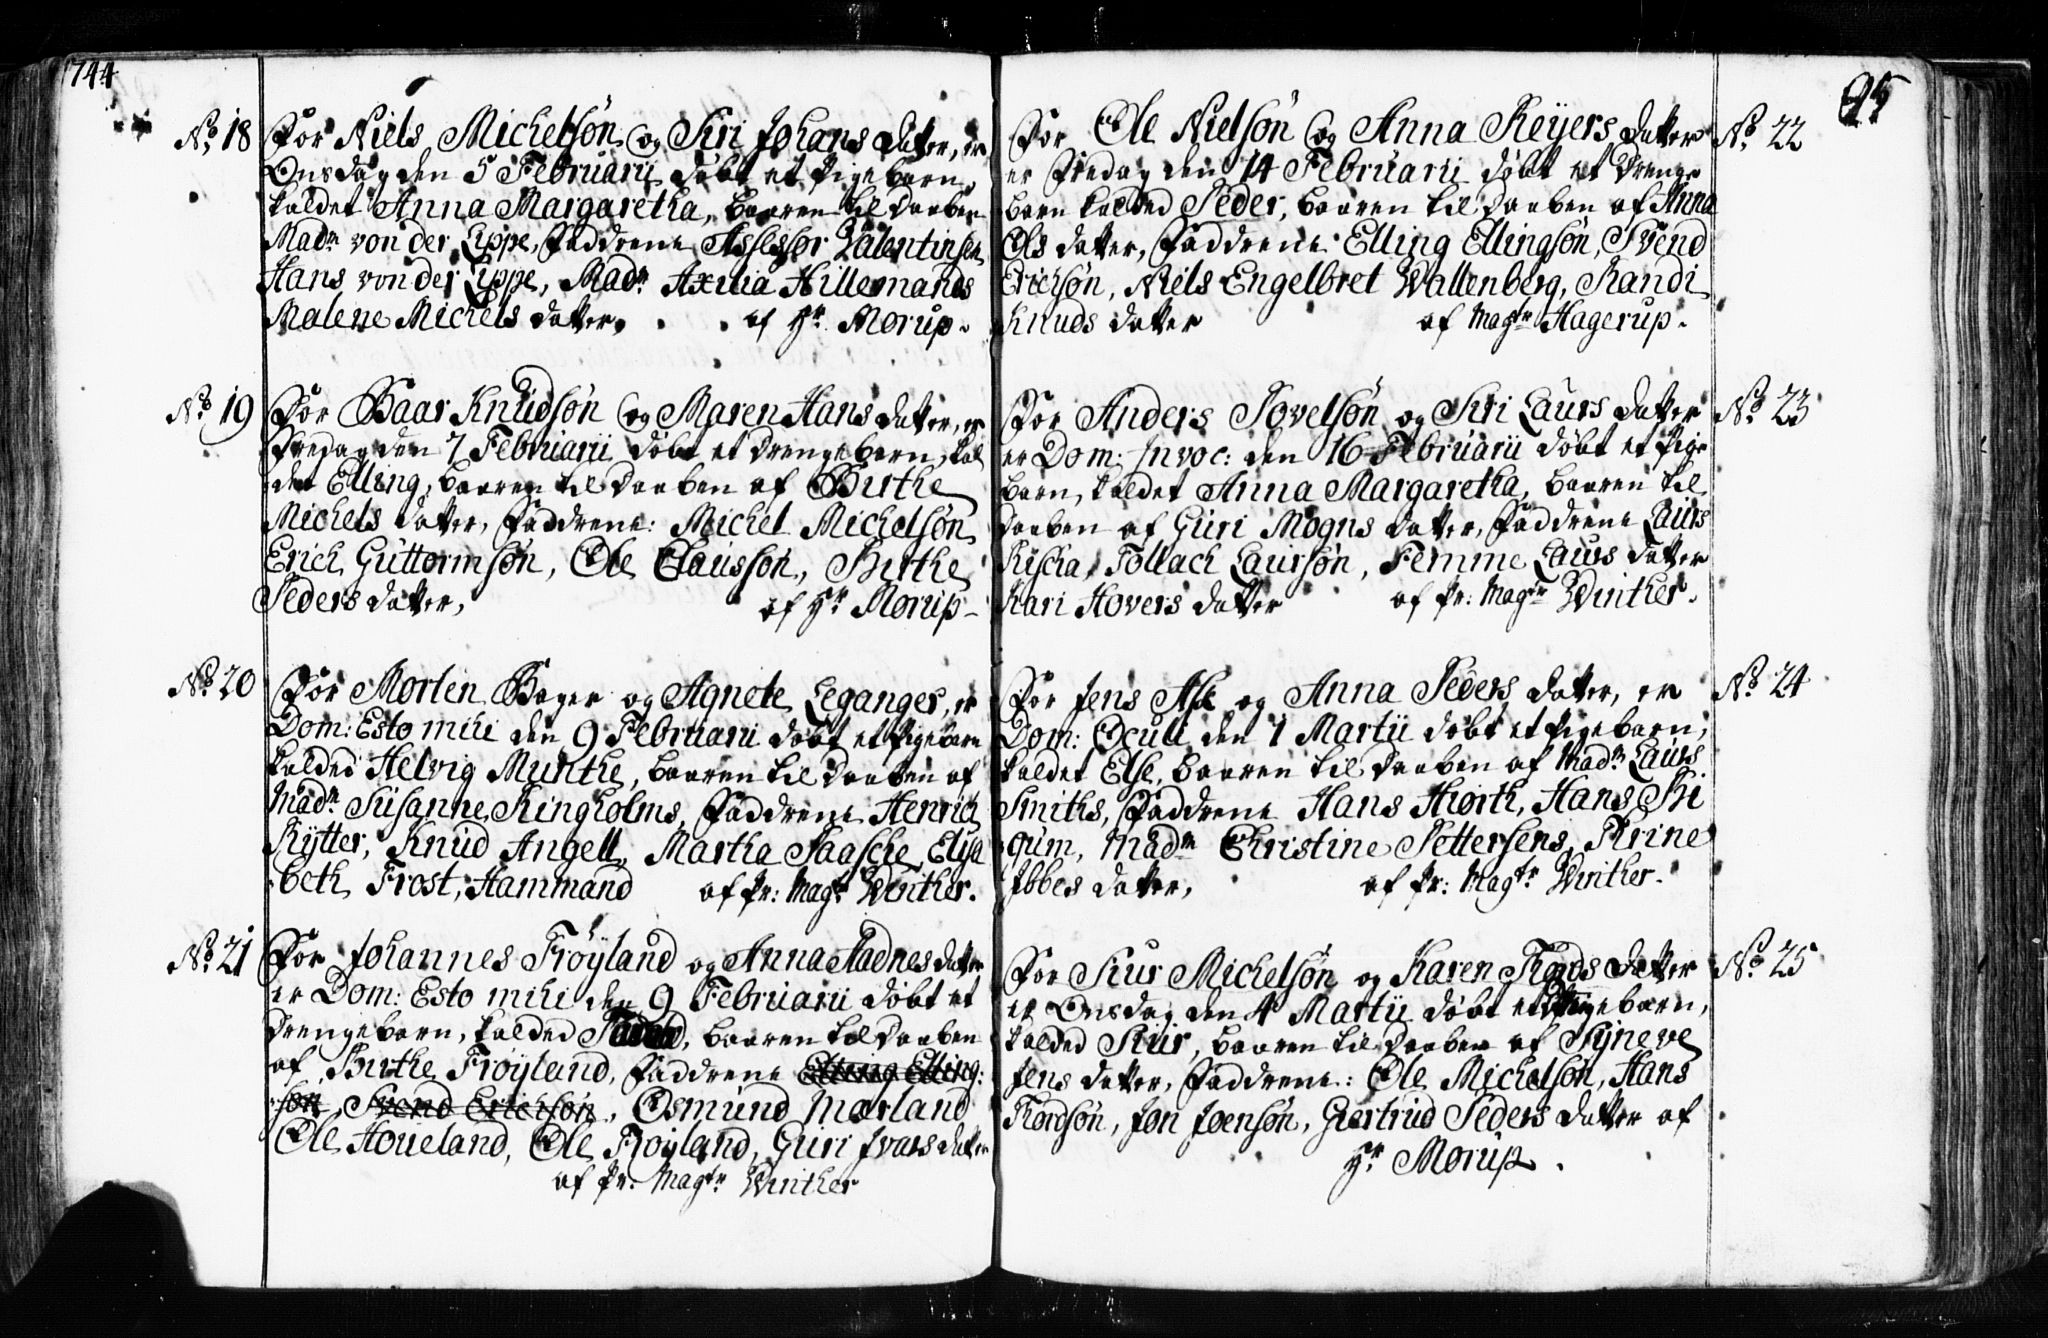 1744
No 18
For Niels Michelsøn og Siri Johans datter, er
Onsdag den 5 Februarii døbt et Pigebarn
kaldet Anna Margaretha, baaren til daaben
Madm von der Lippe, Fadderne Assessor Valentinsen
Hans von der Lippe, Madm Axilia Hillemands
Malene Michels datter, af Hr Mørup.
No 19
For Baar Knudsøn og Maren Hans datter, er
Fredag den 7 Februarii døbt et drengebarn, kal
det Elling, baaren til daaben af Birthe
Michels datter, Faddrene: Michel Michelsøn
Erich Guttormsøn, Ole Clausson, Birthe
Peders datter, af Hr Mørup
No 20
For Morten Bager og Agnete Leganger, er
Dom: Esto mihi den 9 Februarii døbt et Pigebarn
kalded Helvig Munthe, baaren til daaben af
Madm Susanne Ringholms, Faddrene Henrich
Rytter, Knud Angell, Martha Paasche, Elisa
beth Frost, Hammand af Pr: Magr Winther.
No 21
For Johannes Frøyland og Anna Aadnes datter
er Dom: Esto mihi den 9 Februarii døbt et
drengebarn, kalded, baaren til daaben
af Birthe Frøyland, Faddrene Elling Elling:
søn, Svend Erichsøn, Osmund Marland
Ole Houeland, Ole Frøyland, Guri Ivars datter
af Pr: Magtr Winther
95
No 22
For Ole Nielsøn og Anna Reyers datter
er Fredag den 14 Februarii døbt et drenge
barn kalded Peder, baaren til daaben af Anna
Ols datter, Faddrene: Elling Ellingsøn, Svend
Erichsøn, Niels Engelbret Wallenberg, Randi
Knuds datter af Magtr Hagerup.
No 23
For Anders Povelsøn og Siri Laurs datter
er Dom: Invoc: den 16 Februarii døbt et Pige
barn, kaldet Anna Margaretha, baaren til
daaben af Guri Mogns datter, Faddrene Laurs
Rischa, Tollach Laursøn, Femme Laurs datter
Kari Hovers datter af Pr: Magtr Winther.
No 24
For Jens Ask og Anna Peders datter, er
Dom: Oculi den 1 Martii døbt et Pigebarn,
kaldet Else, baaren til daaben af Madm Laurs
Smiths, Faddrene Hans Hiorth, Hans Bi
qum, Madm Christine Pettersens, Trine
Ibbes datter, af Pr: Magtr Winther.
No 25
For Siur Michelsøn og Karen Thords datter
er Onsdag den 4 Martii døbt et Pigebarn,
kalded Siur, baaren til daaben af Syneve
Jens datter, Faddrene: Ole Michelsøn, Hans
Thordsøn, Jon Joensøn, Giertrud Peders datter af
Hr Mørup.